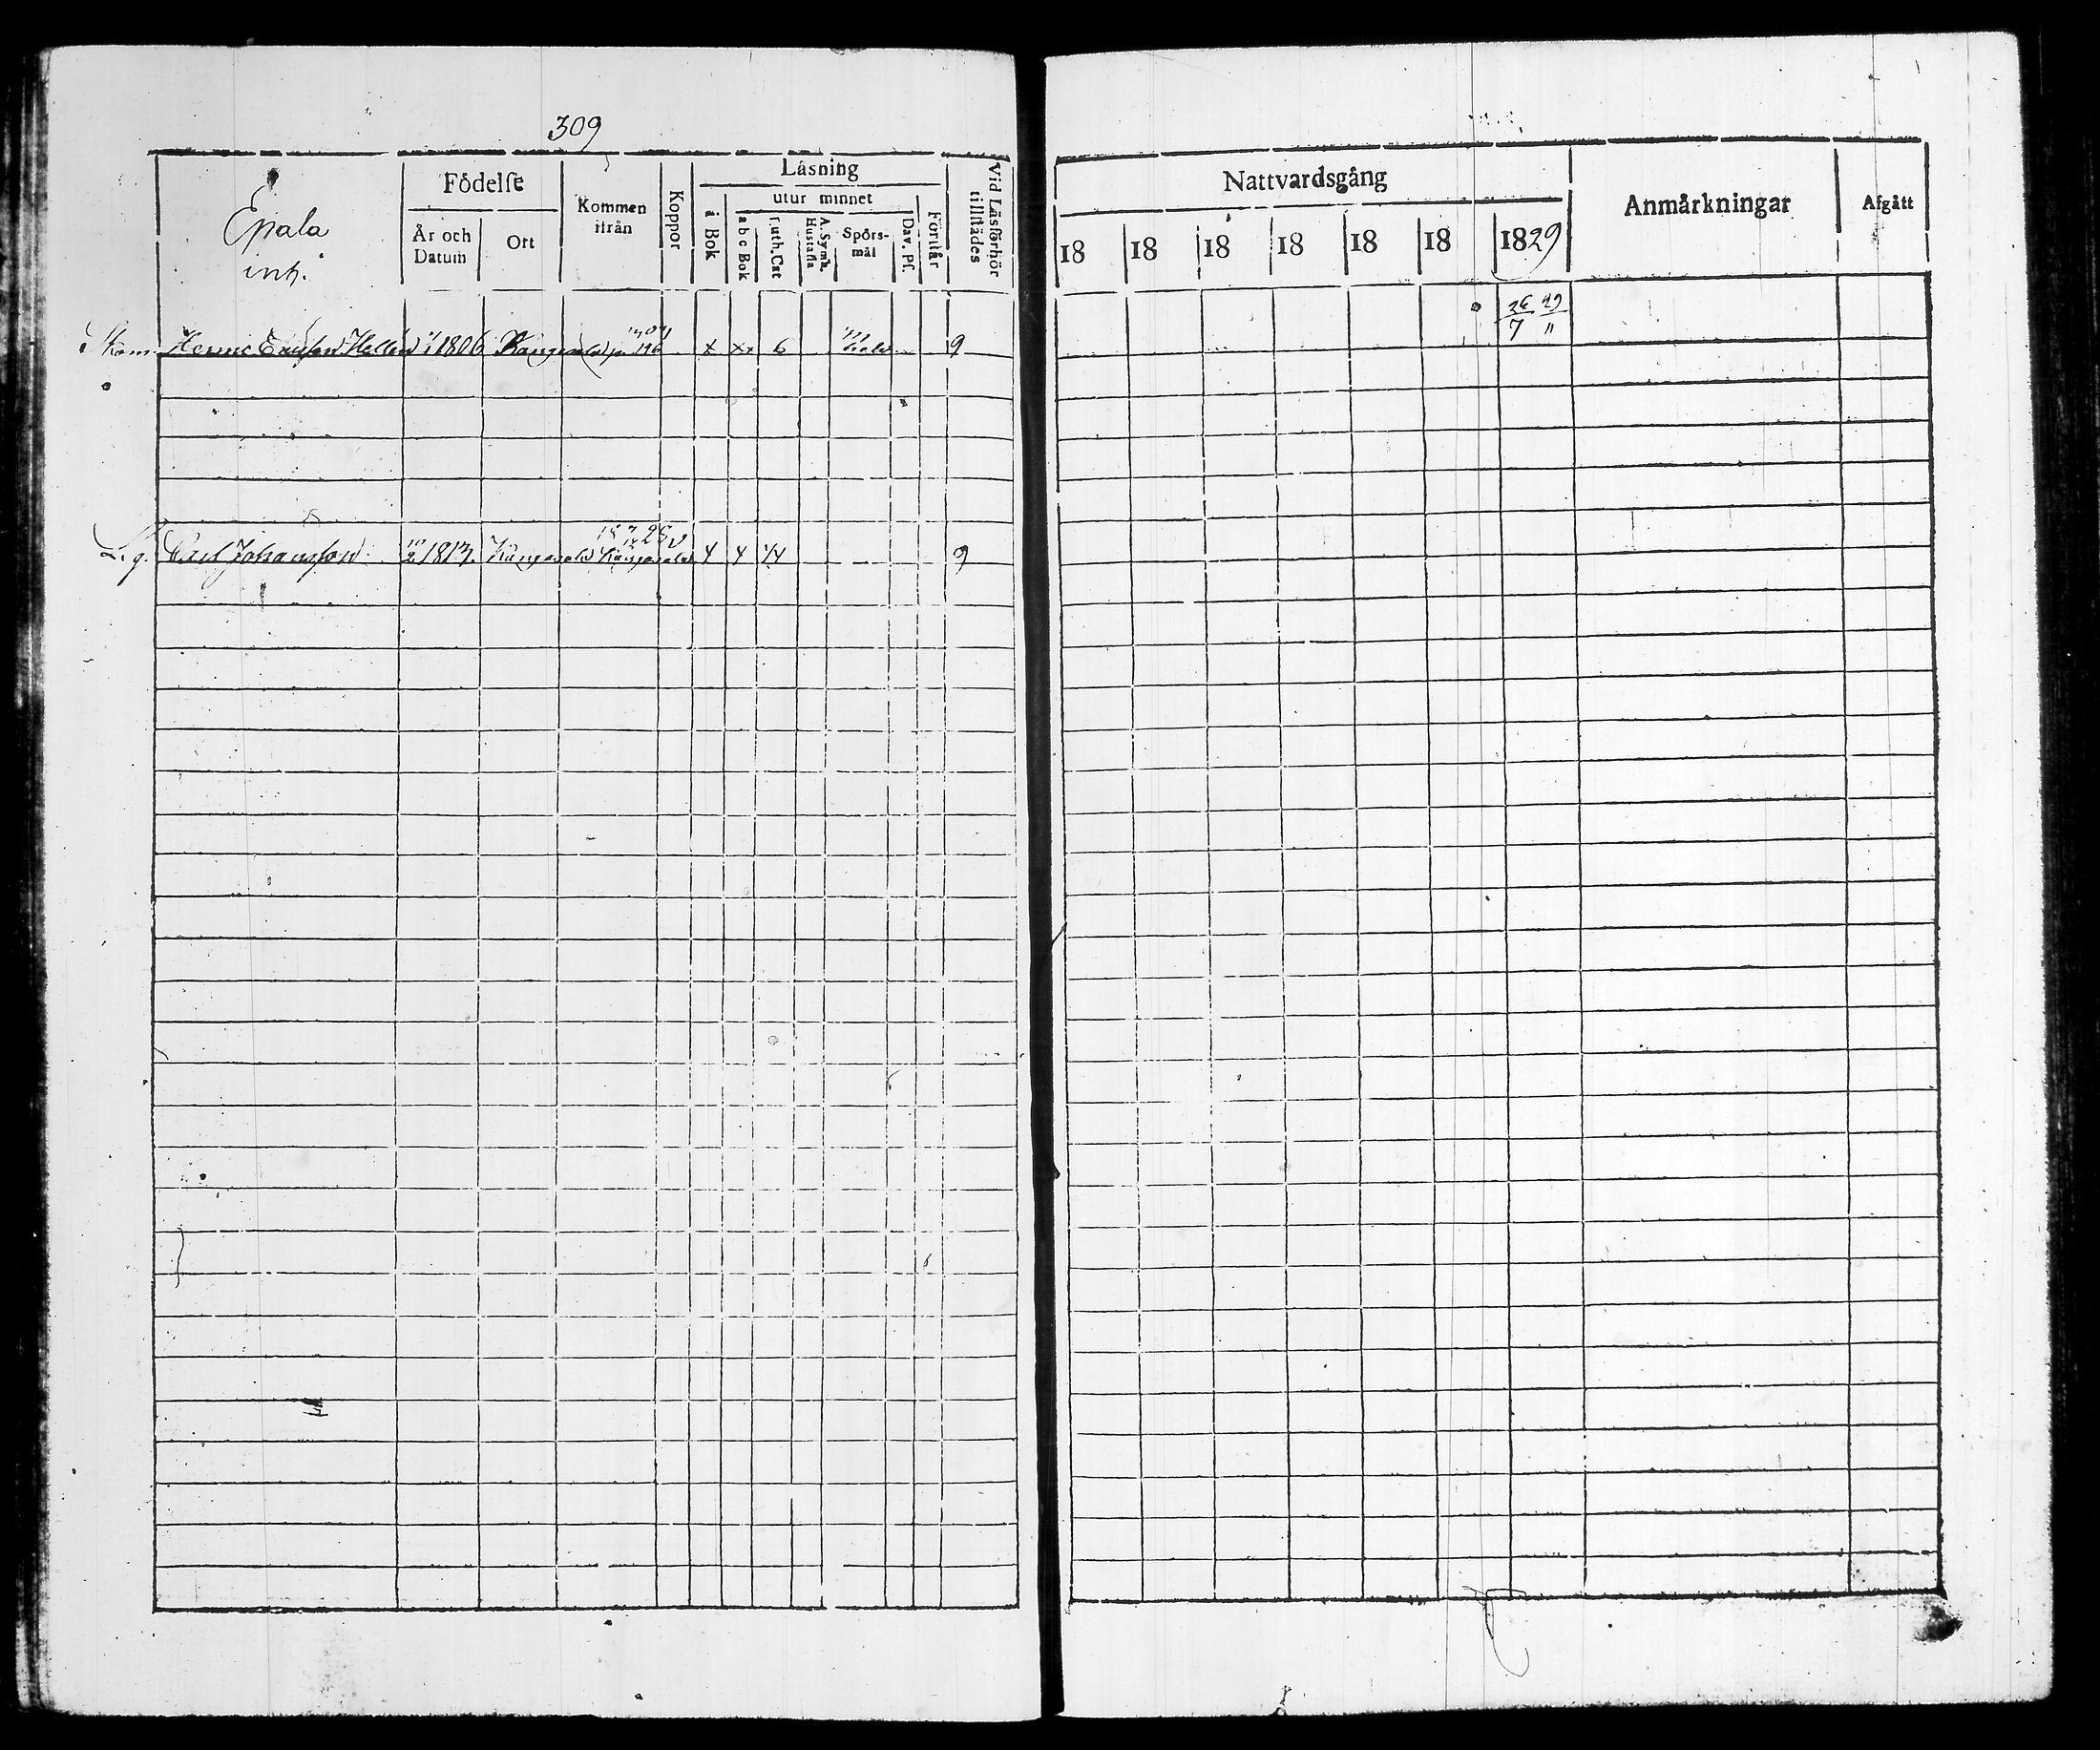 309
Epala
inh.
Födelse
År och
Datum
Ort
Kommen
ifrån
Koppor
Läsning
i Bok
utur minnet
a b c Bok
Luth. Cat
A. Symb.
Hustafla
Spörs-
mål
Dav. Ps.
Förstår
Vid Läsförhör
tillstädes
Skom. Henric Ericsson Hellen 1806 Kangasala 196 x xx 6 9
L.g. Carl Johansson 10/2 1813. Kangasala Kangasala 9
Nattvardsgång
18 18 18 18 18 18 1829
Anmärkningar
Afgått
26 29
7 "